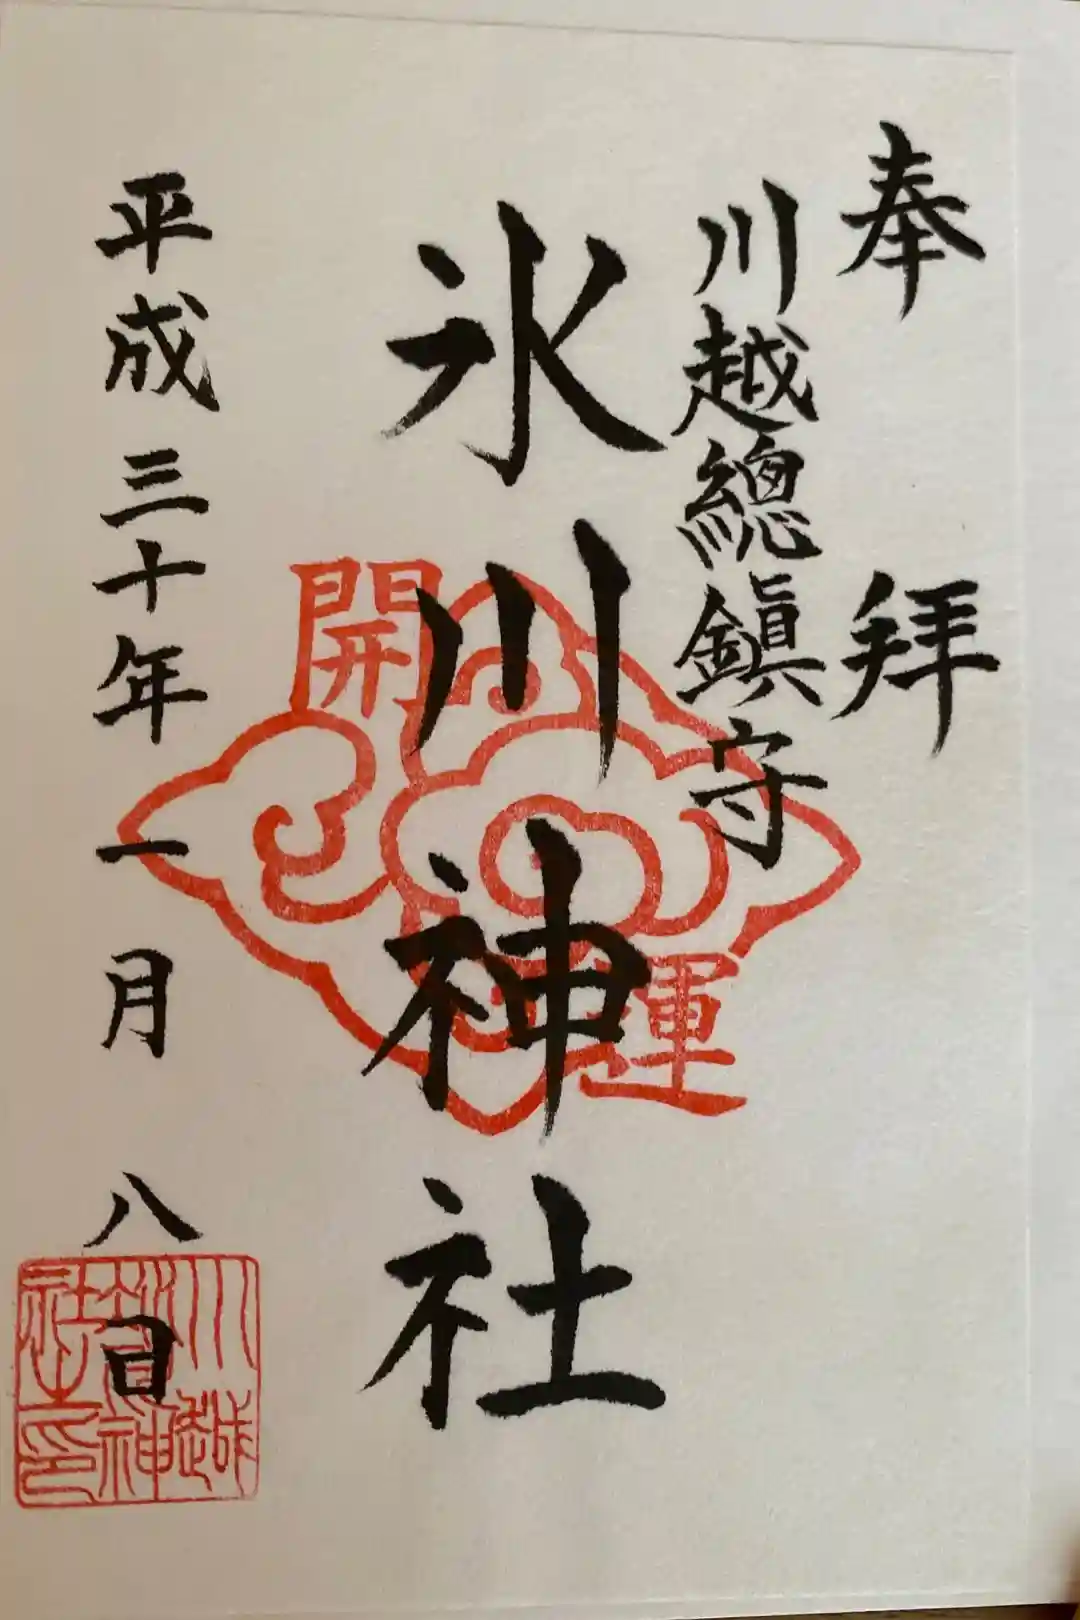 奉拝
川越總鎮守
氷川神社
開運
平成三十年一月八日
川越氷川神社之印